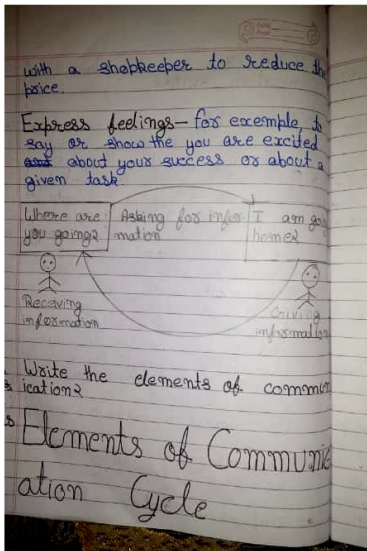 with a shopkeeper to reduce the
price.
Express feelings- for exemple, to
say or show the you are excited
about your success or about a
given task.
Where are
you going?
Asking for infor
mation
I am goi
home?
Receiving
information
Giving
information
Write the elements of commun
ication?
Elements of Communic
ation Cycle